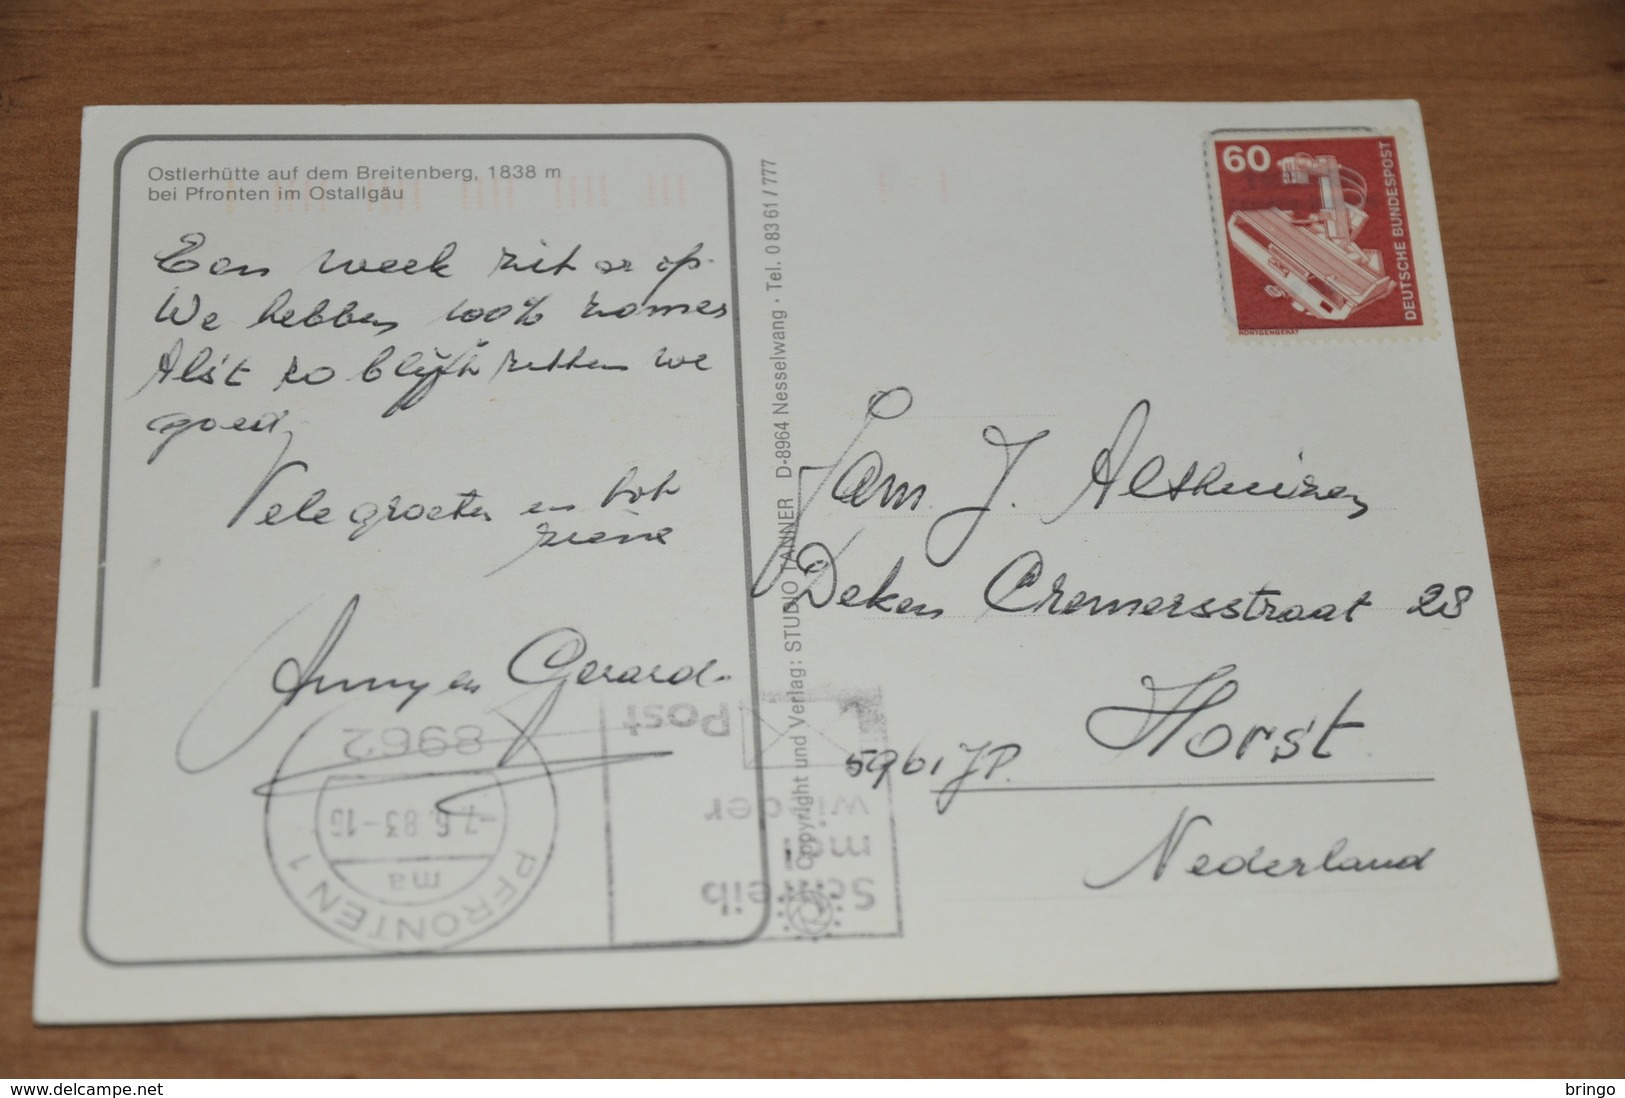 Ostlerhütte auf dem Breitenberg, 1838 m
bei Pfronten im Ostallgäu
Een week zit er op.
We hebben 100% zomer
Als't zo blijft zitten we
goed,
Vele groeten en tot
ziens
Anny en Gerard.
Copyright und Verlag: STUDIO TANNER D-8964 Nesselwang · Tel. 0 83 61 / 777
60
DEUTSCHE BUNDESPOST
RÖNTGENGERÄT
Fam. J. Althuizen
Deken Cremersstraat 28
5961 JP. Horst
Nederland
PFRONTEN 1
ma
-7.6.83-15
8962
Schreib
mal
wieder
Post
delcampe.net
bringo